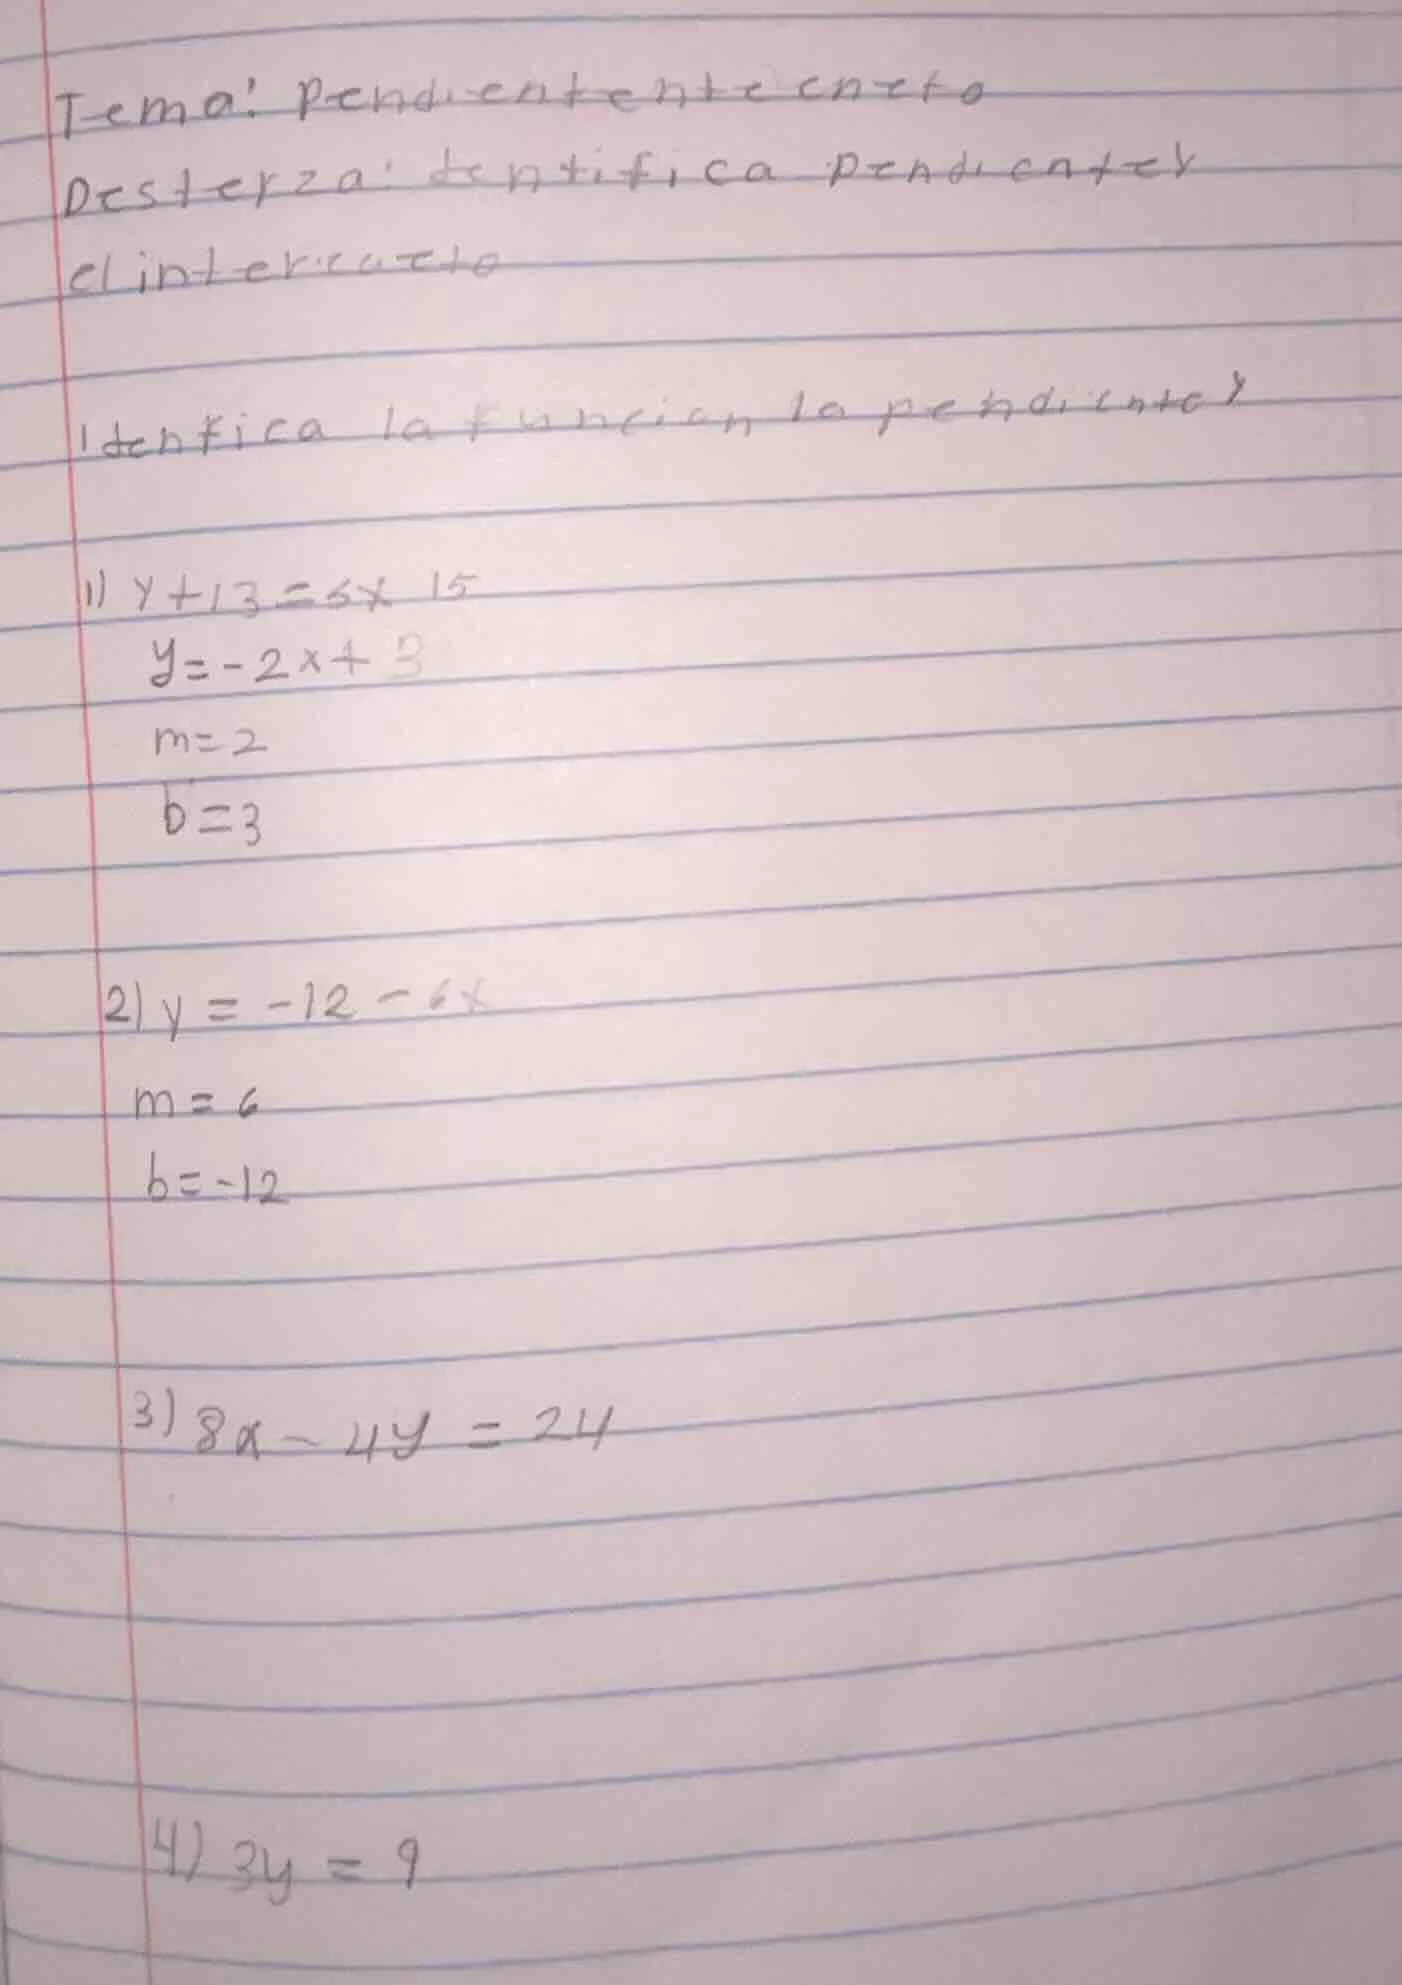 Tema: Pendientente encto
Desterza: Identifica Pendiente y
el intercecto
Idenfica la funcion la pendiente y
1) y+13=5x 15
y=-2x+3
m=2
b=3
2) y = -12 - 6x
m = 6
b=-12
3) 8x - 4y = 24
4) 3y = 9